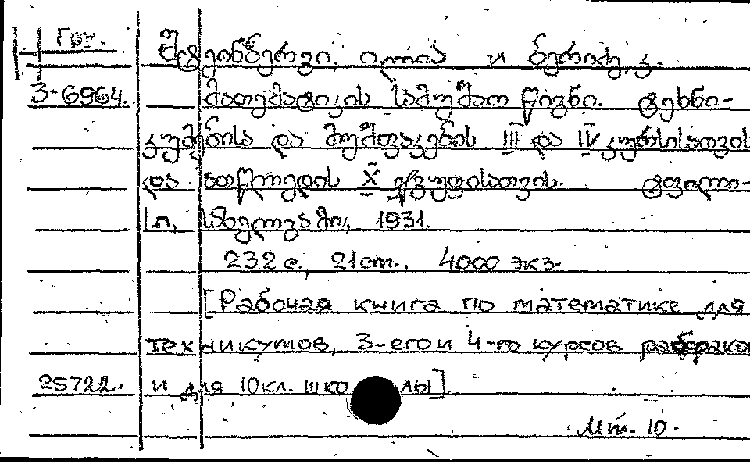 Гру.
შტეინბერგი, ილია и ბერიძე, კ.
3-6964. მათემატიკის სამუშაო წიგნი. ტეხნი-
კუმების და მუშფაკების III და IV კურსისათვის
და ათწლედის X ჯგუფისათვის. ტფილი-
სი, სახელგამი, 1931.
232 с., 21 ст., 4000 экз.
[Рабочая книга по математике для
техникумов, 3-его и 4-го курсов рабфака
25722. и для 10 кл. школы]
Мт. 10.